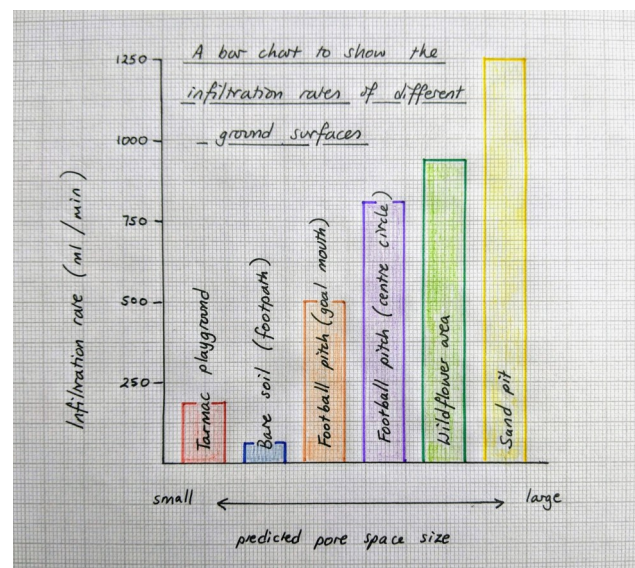 A bar chart to show the
infiltration rates of different
ground surfaces
1250
1000
750
500
250
Infiltration rate (ml / min)
Tarmac playground
Bare soil (footpath)
Football pitch (goal mouth)
Football pitch (centre circle)
Wildflower area
Sand pit
small
large
predicted pore space size